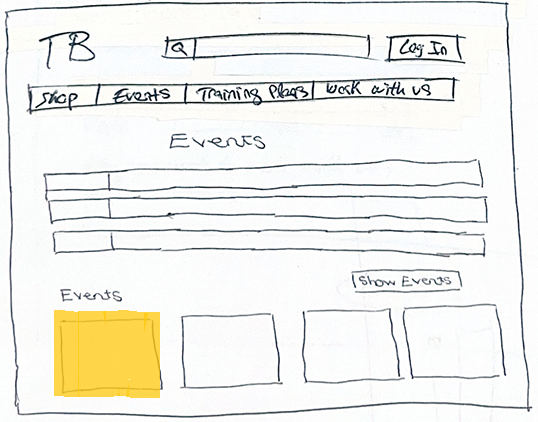 TB
Q
Log In
Shop
Events
Training Plans
Work with us
Events
Show Events
Events